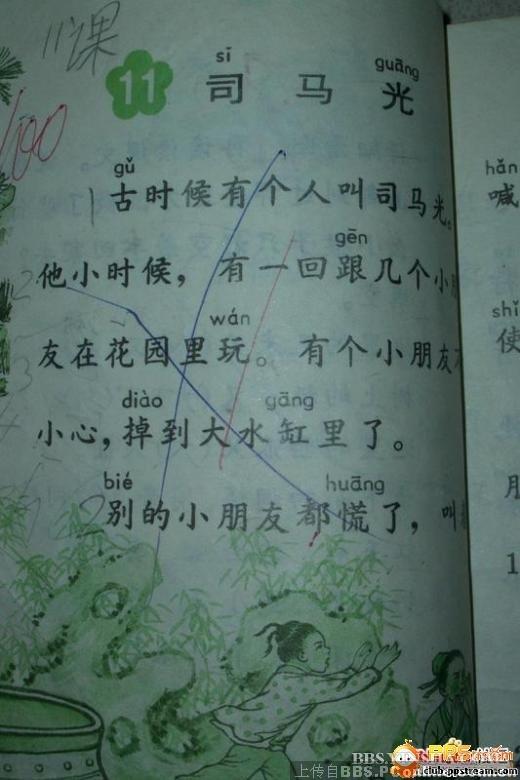 11课
100
11 司马光
sī guāng
gǔ
古时候有个人叫司马光。
gēn
他小时候，有一回跟几个小
wán
友在花园里玩。有个小朋友
diào gāng
小心，掉到大水缸里了。
bié huāng
别的小朋友都慌了，叫
hǎn
喊
shǐ
使
1
上传自BBS.P
club.ppstream.com